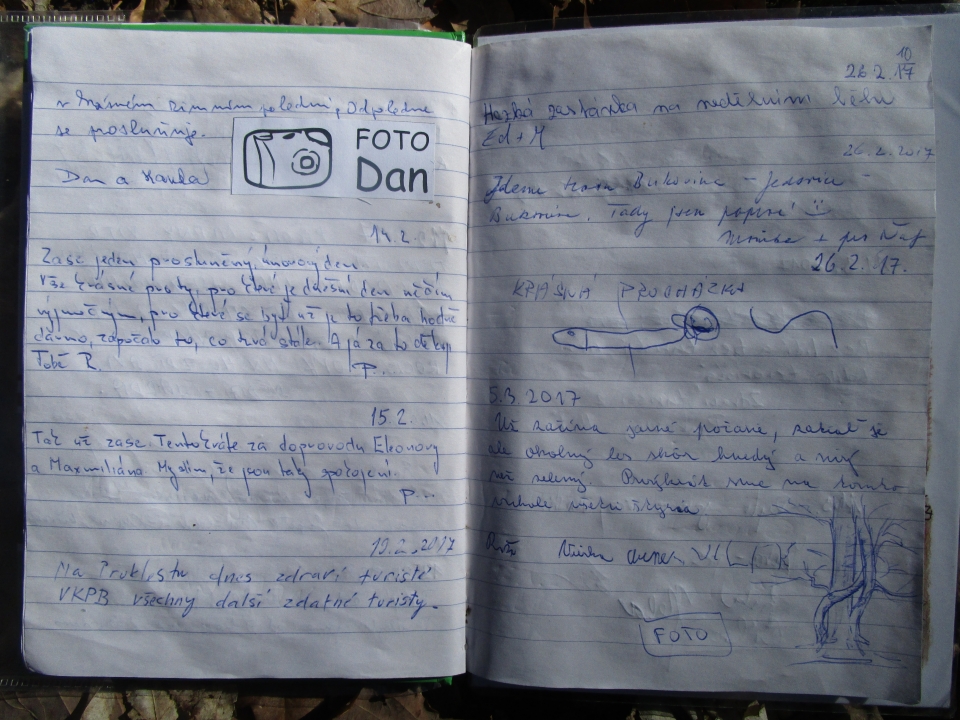 v krásném zimním poledni, odpoledne
se poslunňuje.
FOTO
Dan
Dan a
14.2.
Zase jeden prosluněný únorový den.
Vše krásné pro ty, pro které je dnešní den něčím
výjimečným, pro které se být už je to třeba hodně
dávno, započalo to, co trvá stále. A já za to děkuji
Tobě R. P...
15.2.
Tak už zase. Tentokráte za doprovodu Eleonory
a Maxmiliána. Myslím, že jsou taky spokojení.
P...
19.2.2017
Na Proklestu dnes zdraví turisté
VKPB všechny další zdatné turisty.
10
26.2.17
Hezká zastávka na nedělním běhu
Ed + M
26.2.2017
Jdeme trasu Bukovina - -
Bukovina. Tady jsem poprvé
+ pes
26.2.17.
KRÁSNÁ PROCHÁZKA
5.3.2017
Už začína jarné počasie, zatiaľ je
ale okolný les skôr hnedý a
než zelený. sme na tomto
vrchole
FOTO